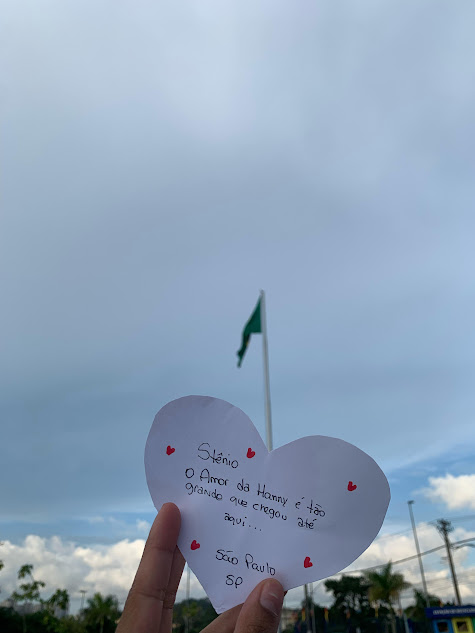 Stênio
O Amor da Hanny é tão
grande que chegou até
aqui...
São Paulo
SP